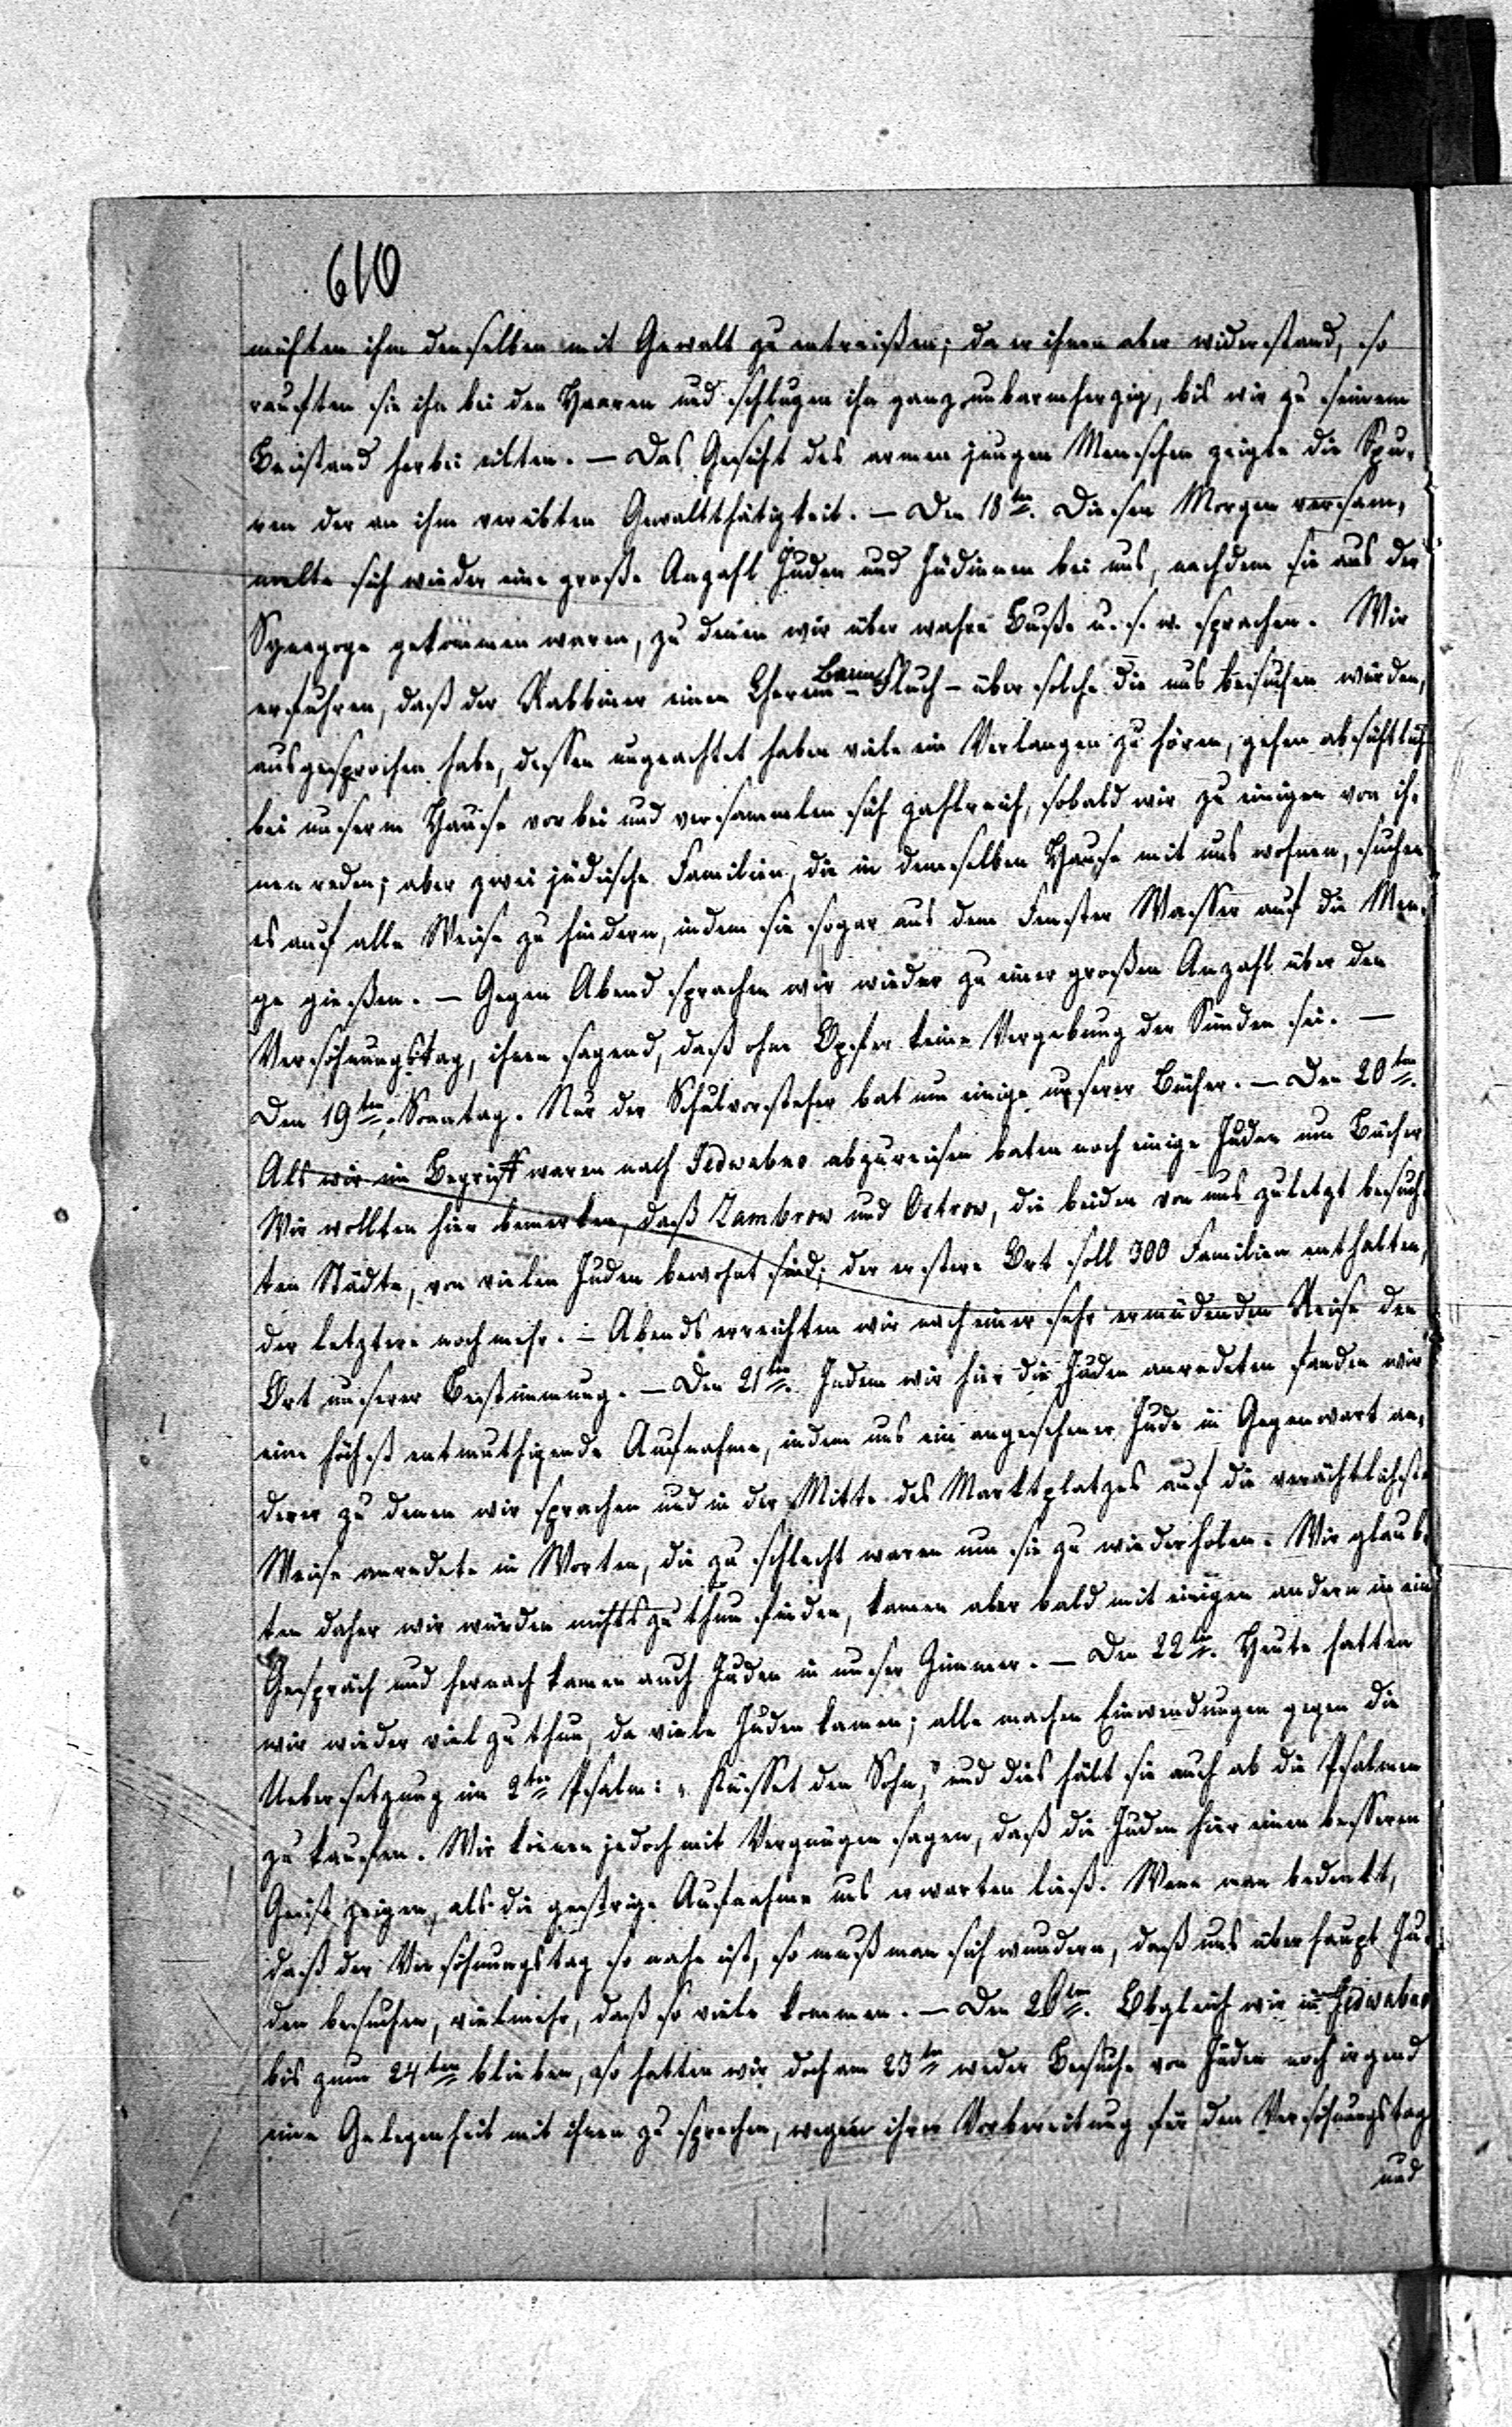 610
mühten ihm denselben mit Gewalt zu entreißen; da er ihnen aber widerstand, so
rauften sie ihn bei den Haaren und schlugen ihn ganz unbarmherzig, bis wir zu seinem
Beistand herbei eilten. — Das Gesicht des armen jungen Menschen zeigte die Spu-
ren der an ihm verübten Gewaltthätigkeit. — Den 18ten. Diesen Morgen versam-
melte sich wieder eine große Anzahl Juden und Jüdinnen bei uns, nachdem sie aus der
Synagoge gekommen waren, zu denen wir über wahre Buße u. s. w. sprachen. Wir
Bann
erfuhren, daß der Rabbiner einen Cherem – Fluch – über solche die uns besuchen würden,
ausgesprochen habe, dessen ungeachtet haben viele ein Verlangen zu hören, gehen absichtlich
bei unserm Hause vorbei und versammlen sich zahlreich, sobald wir zu einigen von ih-
nen reden; aber zwei jüdische Familien, die in demselben Hause mit uns wohnen, suchen
es auf alle Weise zu hindern, indem sie sogar aus dem Fenster Wasser auf die Men-
ge gießen. — Gegen Abend sprachen wir wieder zu einer großen Anzahl über den
Versöhnungstag, ihnen sagend, daß ohne Opfer keine Vergebung der Sünden sei. —
Den 19ten, Sonntag. Nur der Schulvorsteher bat um einige unserer Bücher. — Den 20ten.
Als wir im Begriff waren nach Jedwabno abzureisen baten noch einige Juden um Bücher
Wir wollten hier bemerken, daß Zambrow und Ostrow, die beiden von uns zuletzt besuch-
ten Städte, von vielen Juden bewohnt sind; der erstere Ort soll 300 Familien enthalten,
der letztere noch mehr. — Abends erreichten wir nach einer sehr ermüdenden Reise den
Ort unserer Bestimmung. — Den 21ten. Indem wir hier die Juden anredeten fanden wir
eine höchst entmuthigende Aufnahme, indem uns ein angesehener Jude in Gegenwart an-
derer zu denen wir sprachen und in der Mitte des Marktplatzes auf die verächtlichste
Weise anredete in Worten, die zu schlecht waren um sie zu wiederholen. Wir glaub-
ten daher wir würden nichts zu thun finden, kamen aber bald mit einigen andern in ein
Gespräch und hernach kamen auch Juden in unser Zimmer. — Den 22ten. Heute hatten
wir wieder viel zu thun, da viele Juden kamen; alle machen Einwendungen gegen die
Uebersetzung im 2ten Psalm: „Küsset den Sohn," und dies hält sie auch ab die Psalmen
zu kaufen. Wir können jedoch mit Vergnügen sagen, daß die Juden hier einen besseren
Geist zeigen, als die gestrige Aufnahme uns erwarten ließ. Wenn man bedenkt,
daß der Versöhnungstag so nahe ist, so muß man sich wundern, daß uns überhaupt Ju-
den besuchen, vielmehr, daß so viele kommen. — Den Obgleich wir in Jedwabno
bis zum 24ten blieben, so hatten wir doch am 23ten weder Besuche von Juden noch irgend
eine Gelegenheit mit ihnen zu sprechen, wegen ihrer Vorbereitung für den Versöhnungstag
und